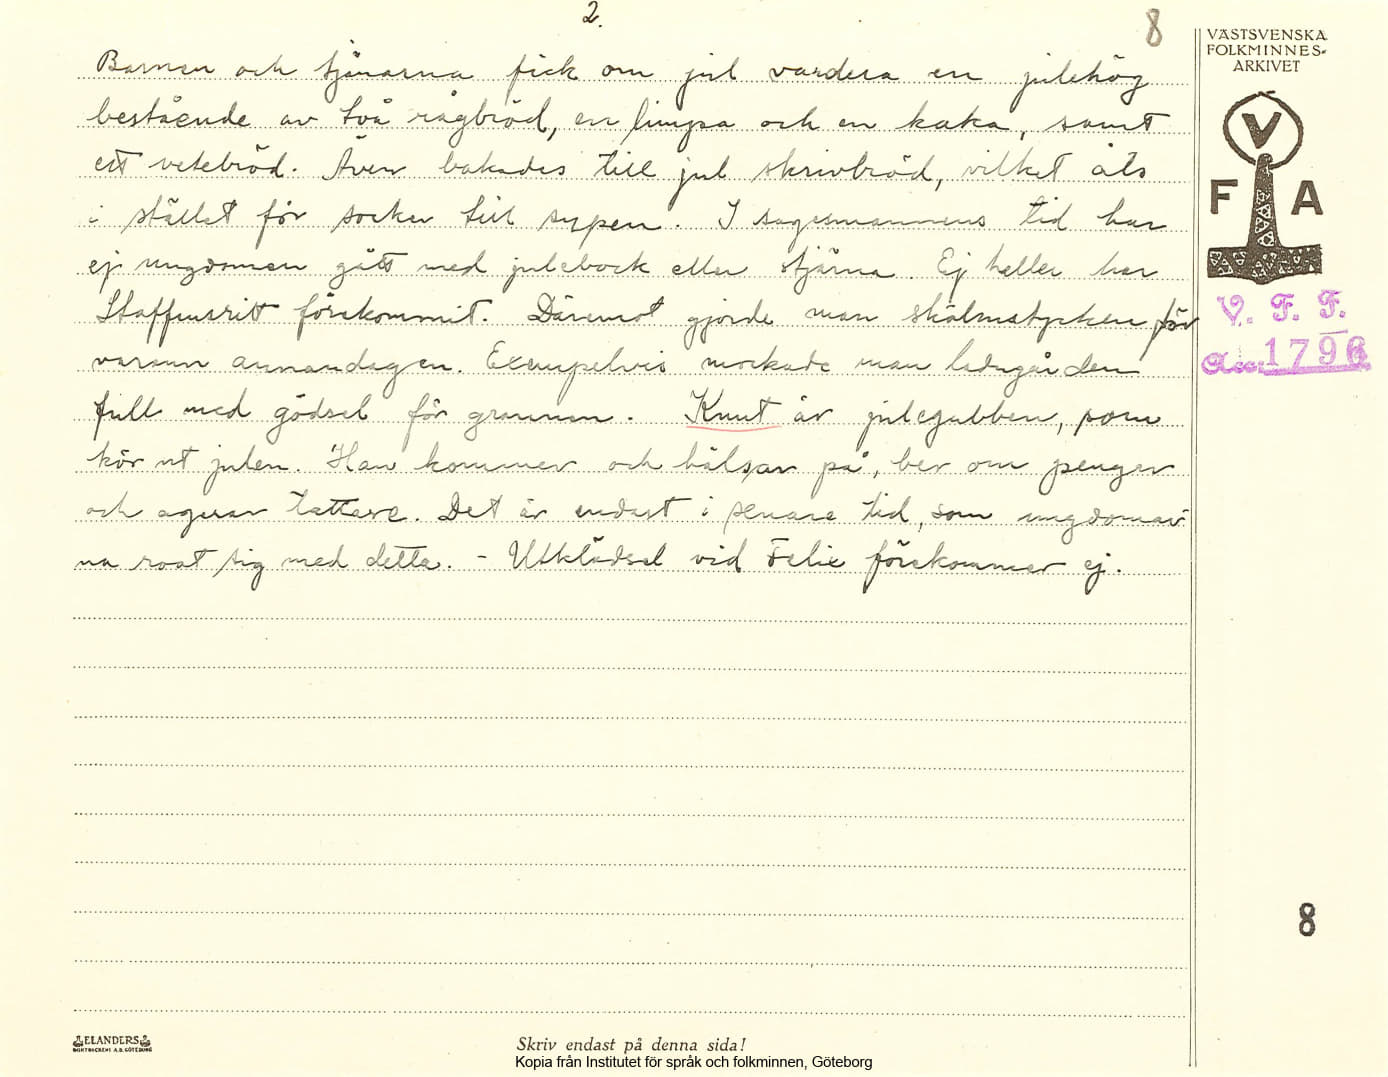 2.
8
VÄSTSVENSKA
FOLKMINNES-
ARKIVET
V
F A
V. F. F.
Acc. 1796
Barnen och tjänarna fick om jul vardera en julehög
bestående av två rågbröd, en limpa och en kaka, samt
ett vetebröd. Även bakades till jul skrivbröd, vilket åts
i stället för socker till supen. I sagesmannens tid har
ej ungdomen gått med julebock eller stjärna. Ej heller har
Staffansritt förekommit. Däremot gjorde man skälmstycken för
varann annandagen. Exempelvis mockade man ladugården
full med gödsel för grannen. Knut är julegubben, som
kör ut julen. Han kommer och hälsar på, ber om pengar
och agerar tattare. Det är endast i senare tid, som ungdomar-
na roat sig med detta. - Utklädsel vid Felix förekommer ej.
8
ELANDERS
BOKTRYCKERI A.B. GÖTEBORG
Skriv endast på denna sida!
Kopia från Institutet för språk och folkminnen, Göteborg